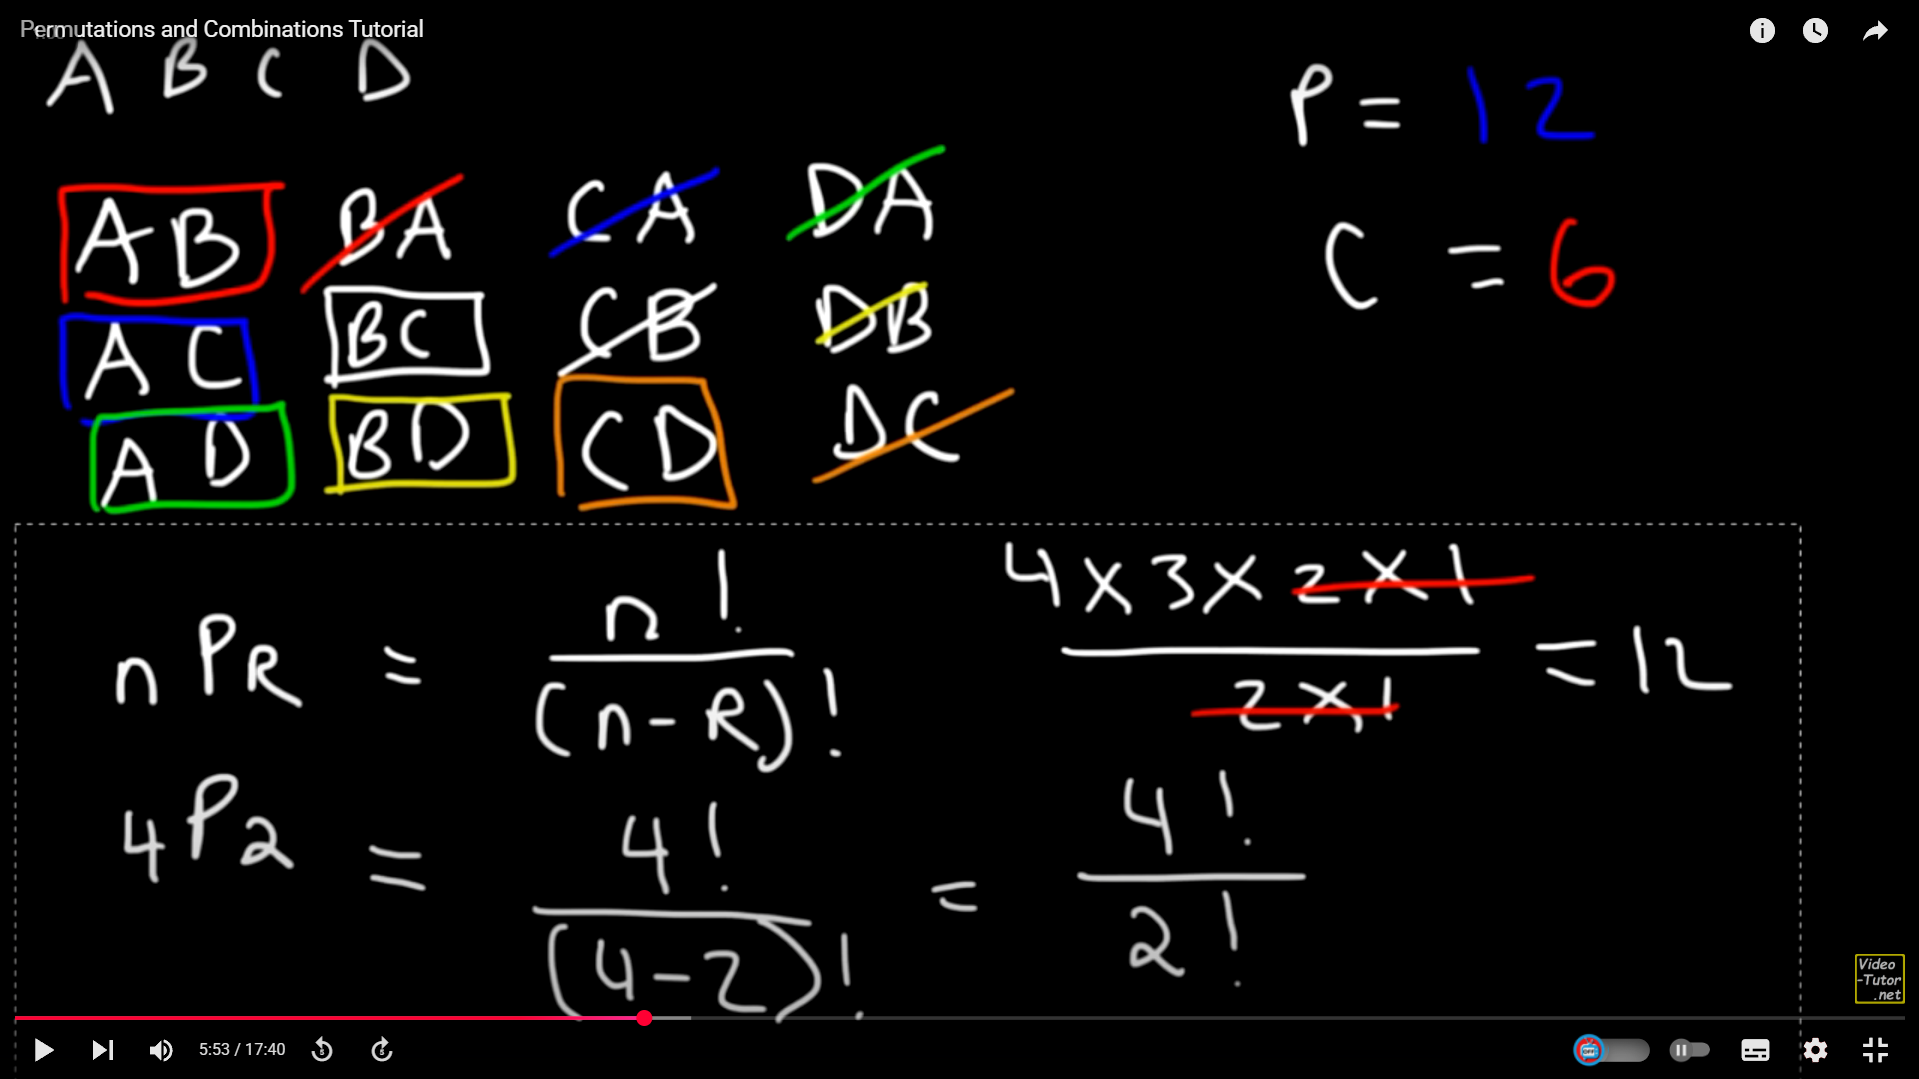 Permutations and Combinations Tutorial
A B C D
P = 12
AB BA CA DA
C = 6
AC BC CB DB
AD BD CD DC
nPR = n! / (n-R)!
4x3x2x1 / 2x1 = 12
4P2 = 4! / (4-2)! = 4! / 2!
Video
-Tutor
.net
5:53 / 17:40
5 5
OFF